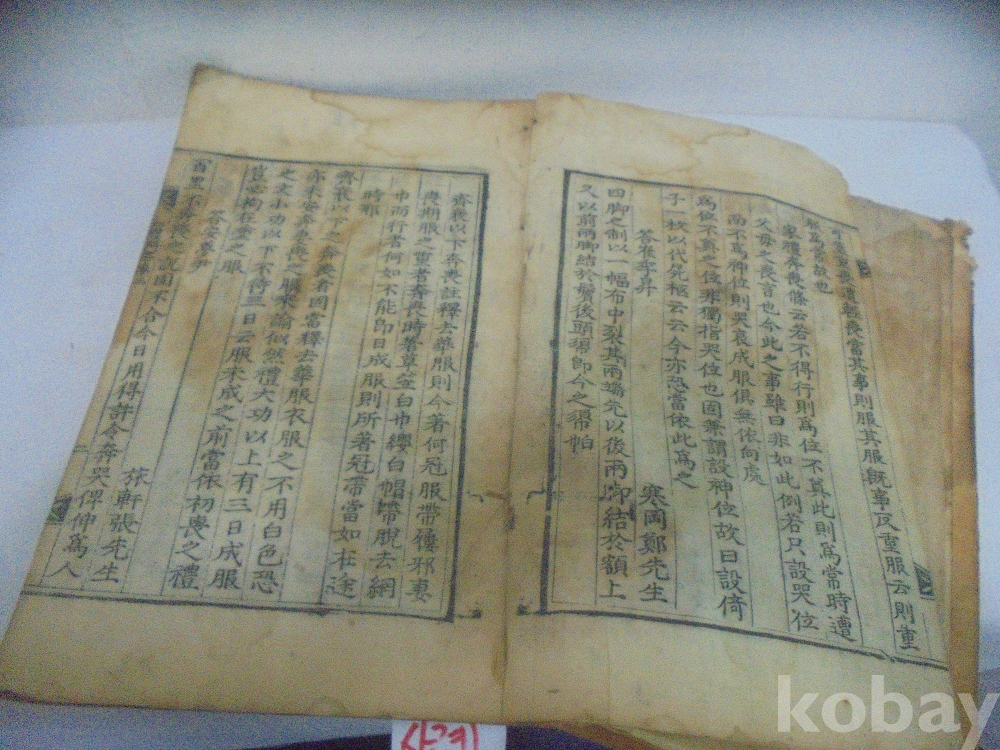 重喪遭輕喪當其事則服其服旣事反重服云則重
服爲常故也
家禮奔喪條云若不得行則爲位不奠此則爲常時遭
父母之喪言也今此之事雖曰非如此例若只設哭位
而不爲神位則哭哀成服俱無依向處
爲位不奠之位非獨指哭位也固兼謂設神位故曰設倚
子一枚以代尸柩云云今亦恐當依此爲之
答崔季昇
寒岡鄭先生
四脚之制以一幅布中裂其兩端先以後兩脚結於額上
又以前兩脚結於鬢後頭須卽今之帬帕
齊衰以下奔喪註釋去華服則今著何冠服帶屨邪妻
喪期服之重者奔喪時著草笠白巾纓白帽帶脫去網
巾而行者何如不能卽日成服則所著冠帶當如在途
時邪
齊衰以下之奔喪者固當釋去華服衣服之不用白色恐
亦未安奔妻喪之服來諭似然禮大功以上有三日成服
之文小功以下不待三日云服未成之前當依初喪之禮
豈必拘在堂之服
答安
旅軒張先生
百里不奔喪之說固不合今日用得許令奔哭俾伸爲人
kobay